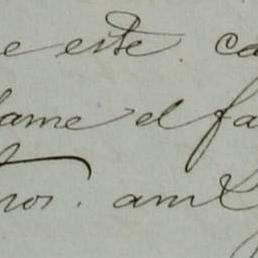 e este ca
lame el fa
nos. am